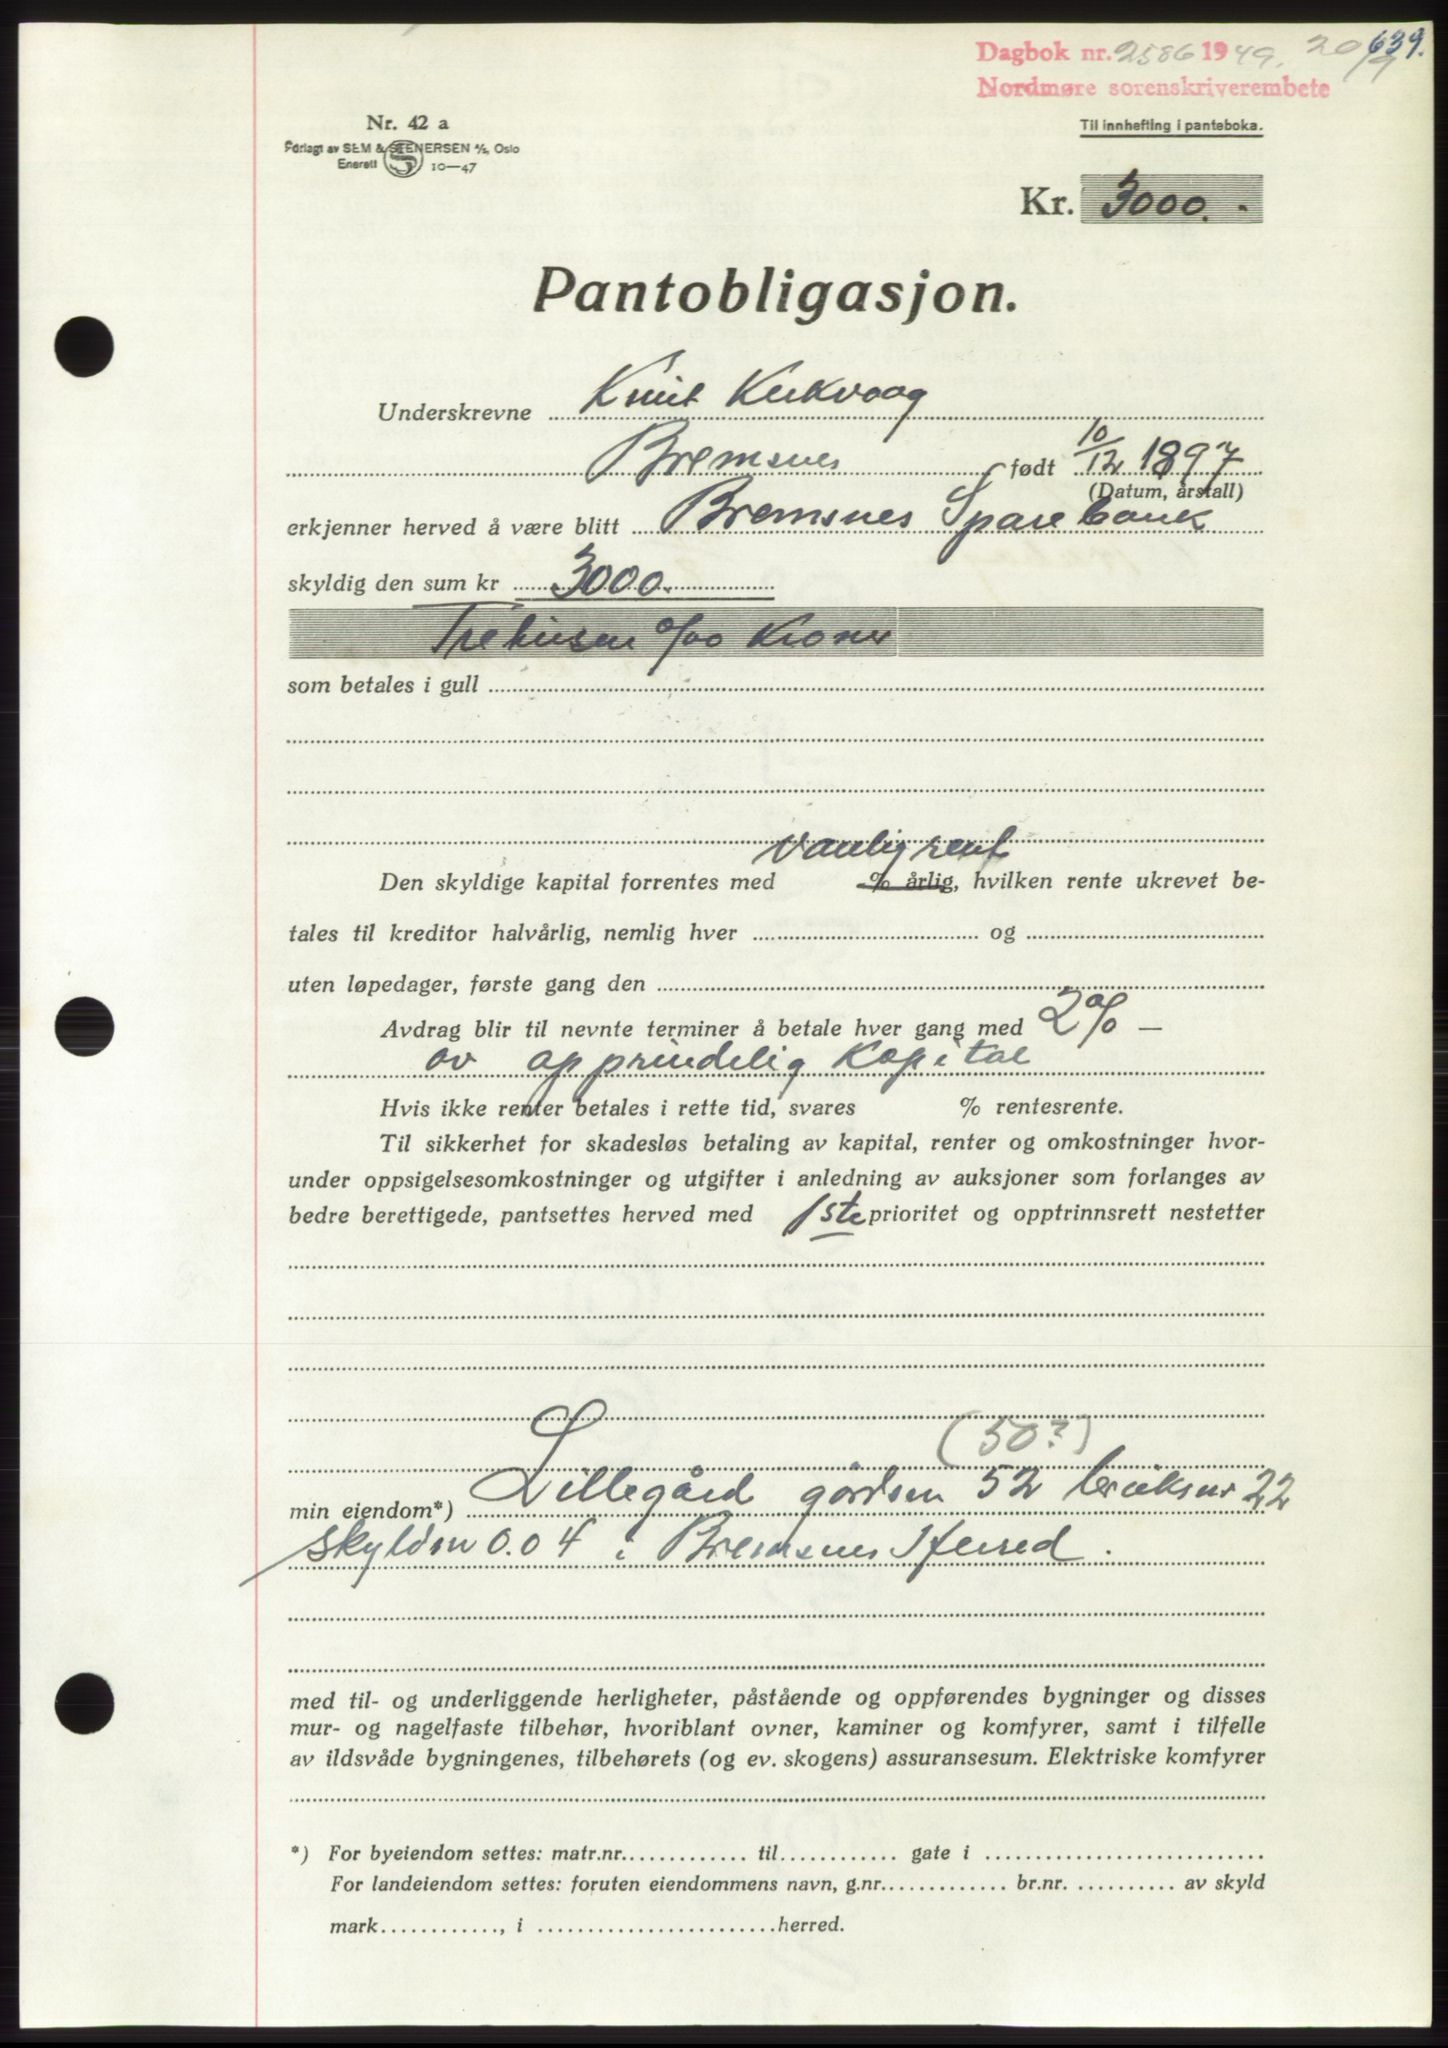 Dagbok nr. 2586 1949. 20/9 639.
Nordmøre sorenskriverembete
Nr. 42 a
Til innhefting i panteboka.
Forlagt av SEM & STENERSEN A/S, Oslo
Enerett S 10—47
Kr. 3000.-
Pantobligasjon.
Underskrevne Knut Kirkvaag
Bremsnes født 10/12 1897
(Datum, årstall)
erkjenner herved å være blitt Bremsnes Sparebank
skyldig den sum kr 3000.
Tretusen 0/00 Kroner
som betales i gull
vanlig rent
Den skyldige kapital forrentes med % årlig, hvilken rente ukrevet be-
tales til kreditor halvårlig, nemlig hver og
uten løpedager, første gang den
Avdrag blir til nevnte terminer å betale hver gang med 2% —
av opprindelig Kapital
Hvis ikke renter betales i rette tid, svares % rentesrente.
Til sikkerhet for skadesløs betaling av kapital, renter og omkostninger hvor-
under oppsigelsesomkostninger og utgifter i anledning av auksjoner som forlanges av
bedre berettigede, pantsettes herved med 1ste prioritet og opptrinnsrett nestetter
(50?)
min eiendom*) Lillegård gårdsnr 52 bruksnr 22
skyldm 0.04 i Bremsnes Herred.
med til- og underliggende herligheter, påstående og oppførendes bygninger og disses
mur- og nagelfaste tilbehør, hvoriblant ovner, kaminer og komfyrer, samt i tilfelle
av ildsvåde bygningenes, tilbehørets (og ev. skogens) assuransesum. Elektriske komfyrer
*) For byeiendom settes: matr.nr. til gate i
For landeiendom settes: foruten eiendommens navn, g.nr. br.nr. av skyld
mark , i herred.